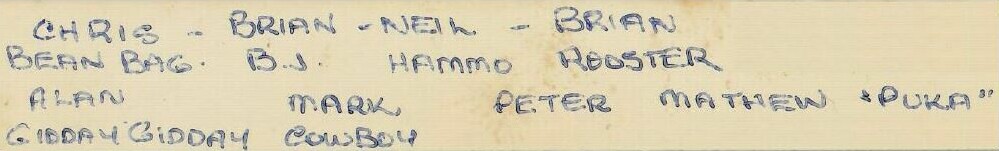 CHRIS - BRIAN - NEIL - BRIAN
BEAN BAG. B.J. HAMMO ROOSTER
ALAN MARK PETER MATHEW "PUKA"
GIDDAY GIDDAY COWBOY